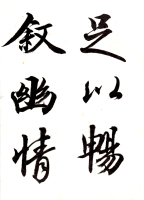 足以暢
敘幽情